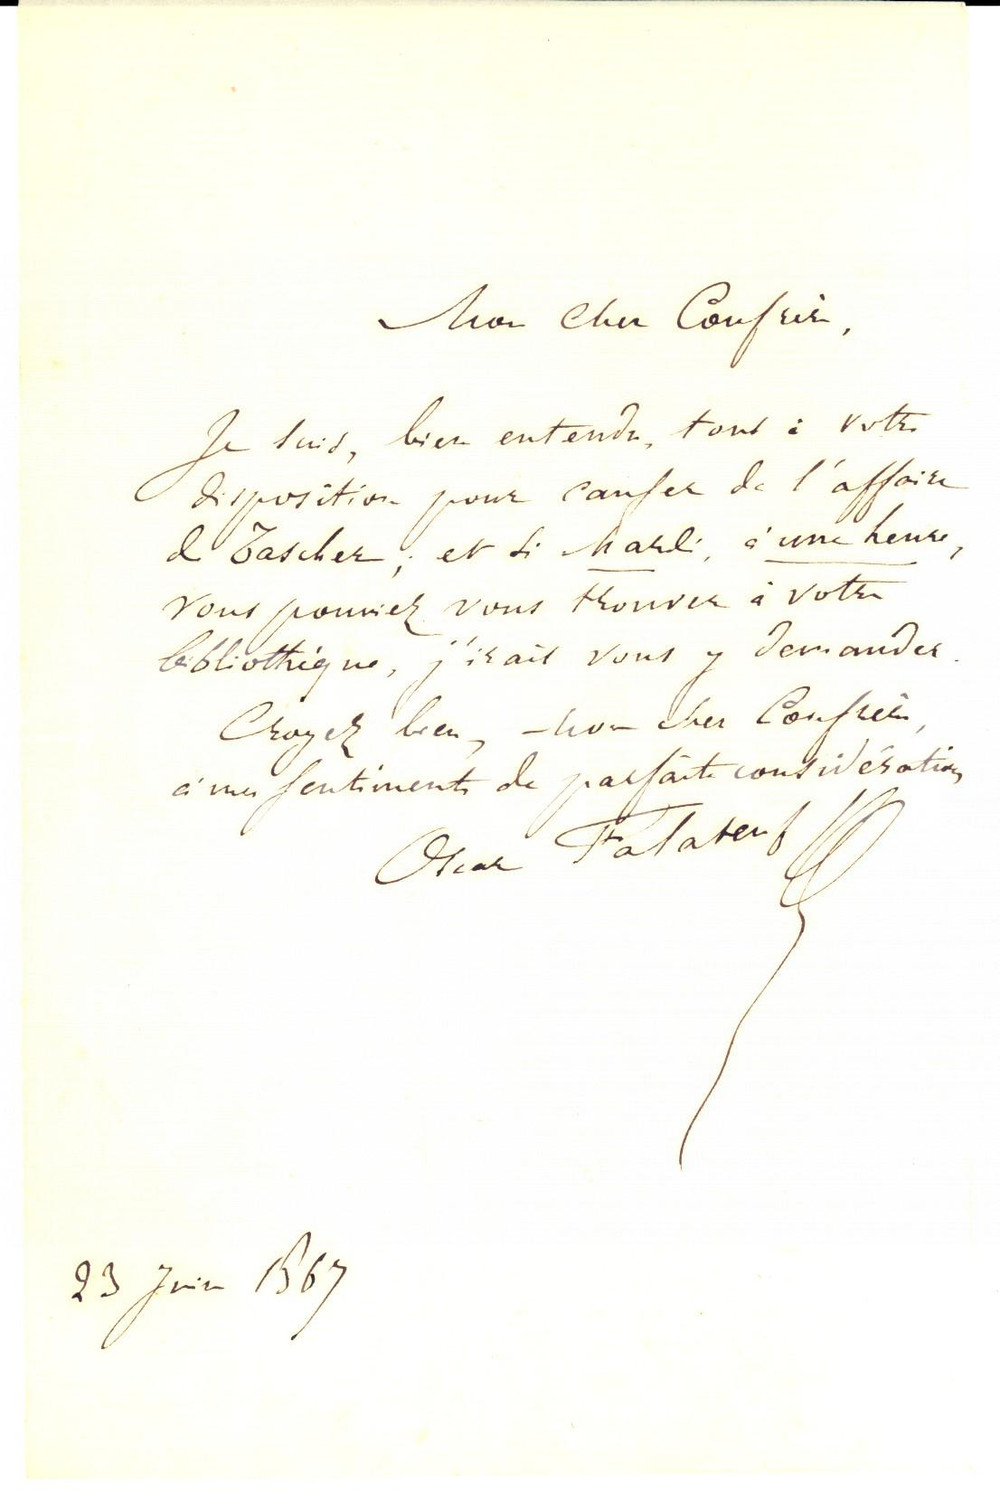 Mon cher Confrère,
Je suis, bien entendu, tout à votre
disposition pour causer de l'affaire
de Tascher ; et si Mardi, à une heure,
vous pouviez vous trouver à votre
bibliothèque, j'irais vous y demander.
Croyez bien, mon cher Confrère,
à mes sentiments de parfaite considération
Oscar Falateuf
23 Juin 1867